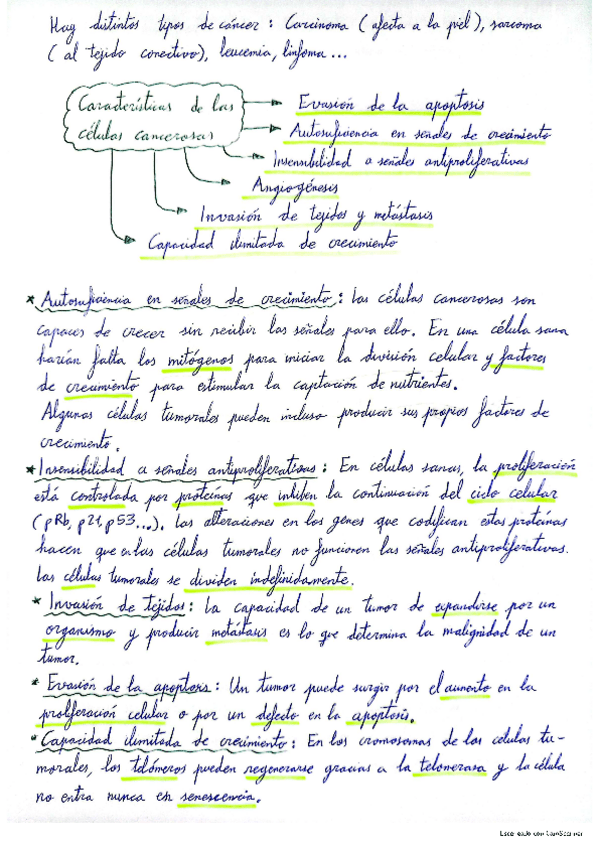 Hay distintos tipos de cáncer: Carcinoma (afecta a la piel), sarcoma
(al tejido conectivo), leucemia, linfoma...
Características de las
células cancerosas
Evasión de la apoptosis
Autosuficiencia en señales de crecimiento
Insensibilidad a señales antiproliferativas
Angiogénesis
Invasión de tejidos y metástasis
Capacidad ilimitada de crecimiento
* Autosuficiencia en señales de crecimiento: las células cancerosas son
capaces de crecer sin recibir las señales para ello. En una célula sana
harían falta los mitógenos para iniciar la división celular y factores
de crecimiento para estimular la captación de nutrientes.
Algunas células tumorales pueden incluso producir sus propios factores de
crecimiento.
* Insensibilidad a señales antiproliferativas: En células sanas, la proliferación
está controlada por proteínas que inhiben la continuación del ciclo celular
(pRb, p21, p53...). Las alteraciones en los genes que codifican estas proteínas
hacen que en las células tumorales no funcionen las señales antiproliferativas.
Las células tumorales se dividen indefinidamente.
* Invasión de tejidos: la capacidad de un tumor de expandirse por un
organismo y producir metástasis es lo que determina la malignidad de un
tumor.
* Evasión de la apoptosis: Un tumor puede surgir por el aumento en la
proliferación celular o por un defecto en la apoptosis.
* Capacidad ilimitada de crecimiento: En los cromosomas de las células tu-
morales, los telómeros pueden regenerarse gracias a la telomerasa y la célula
no entra nunca en senescencia.
Escaneado con CamScanner